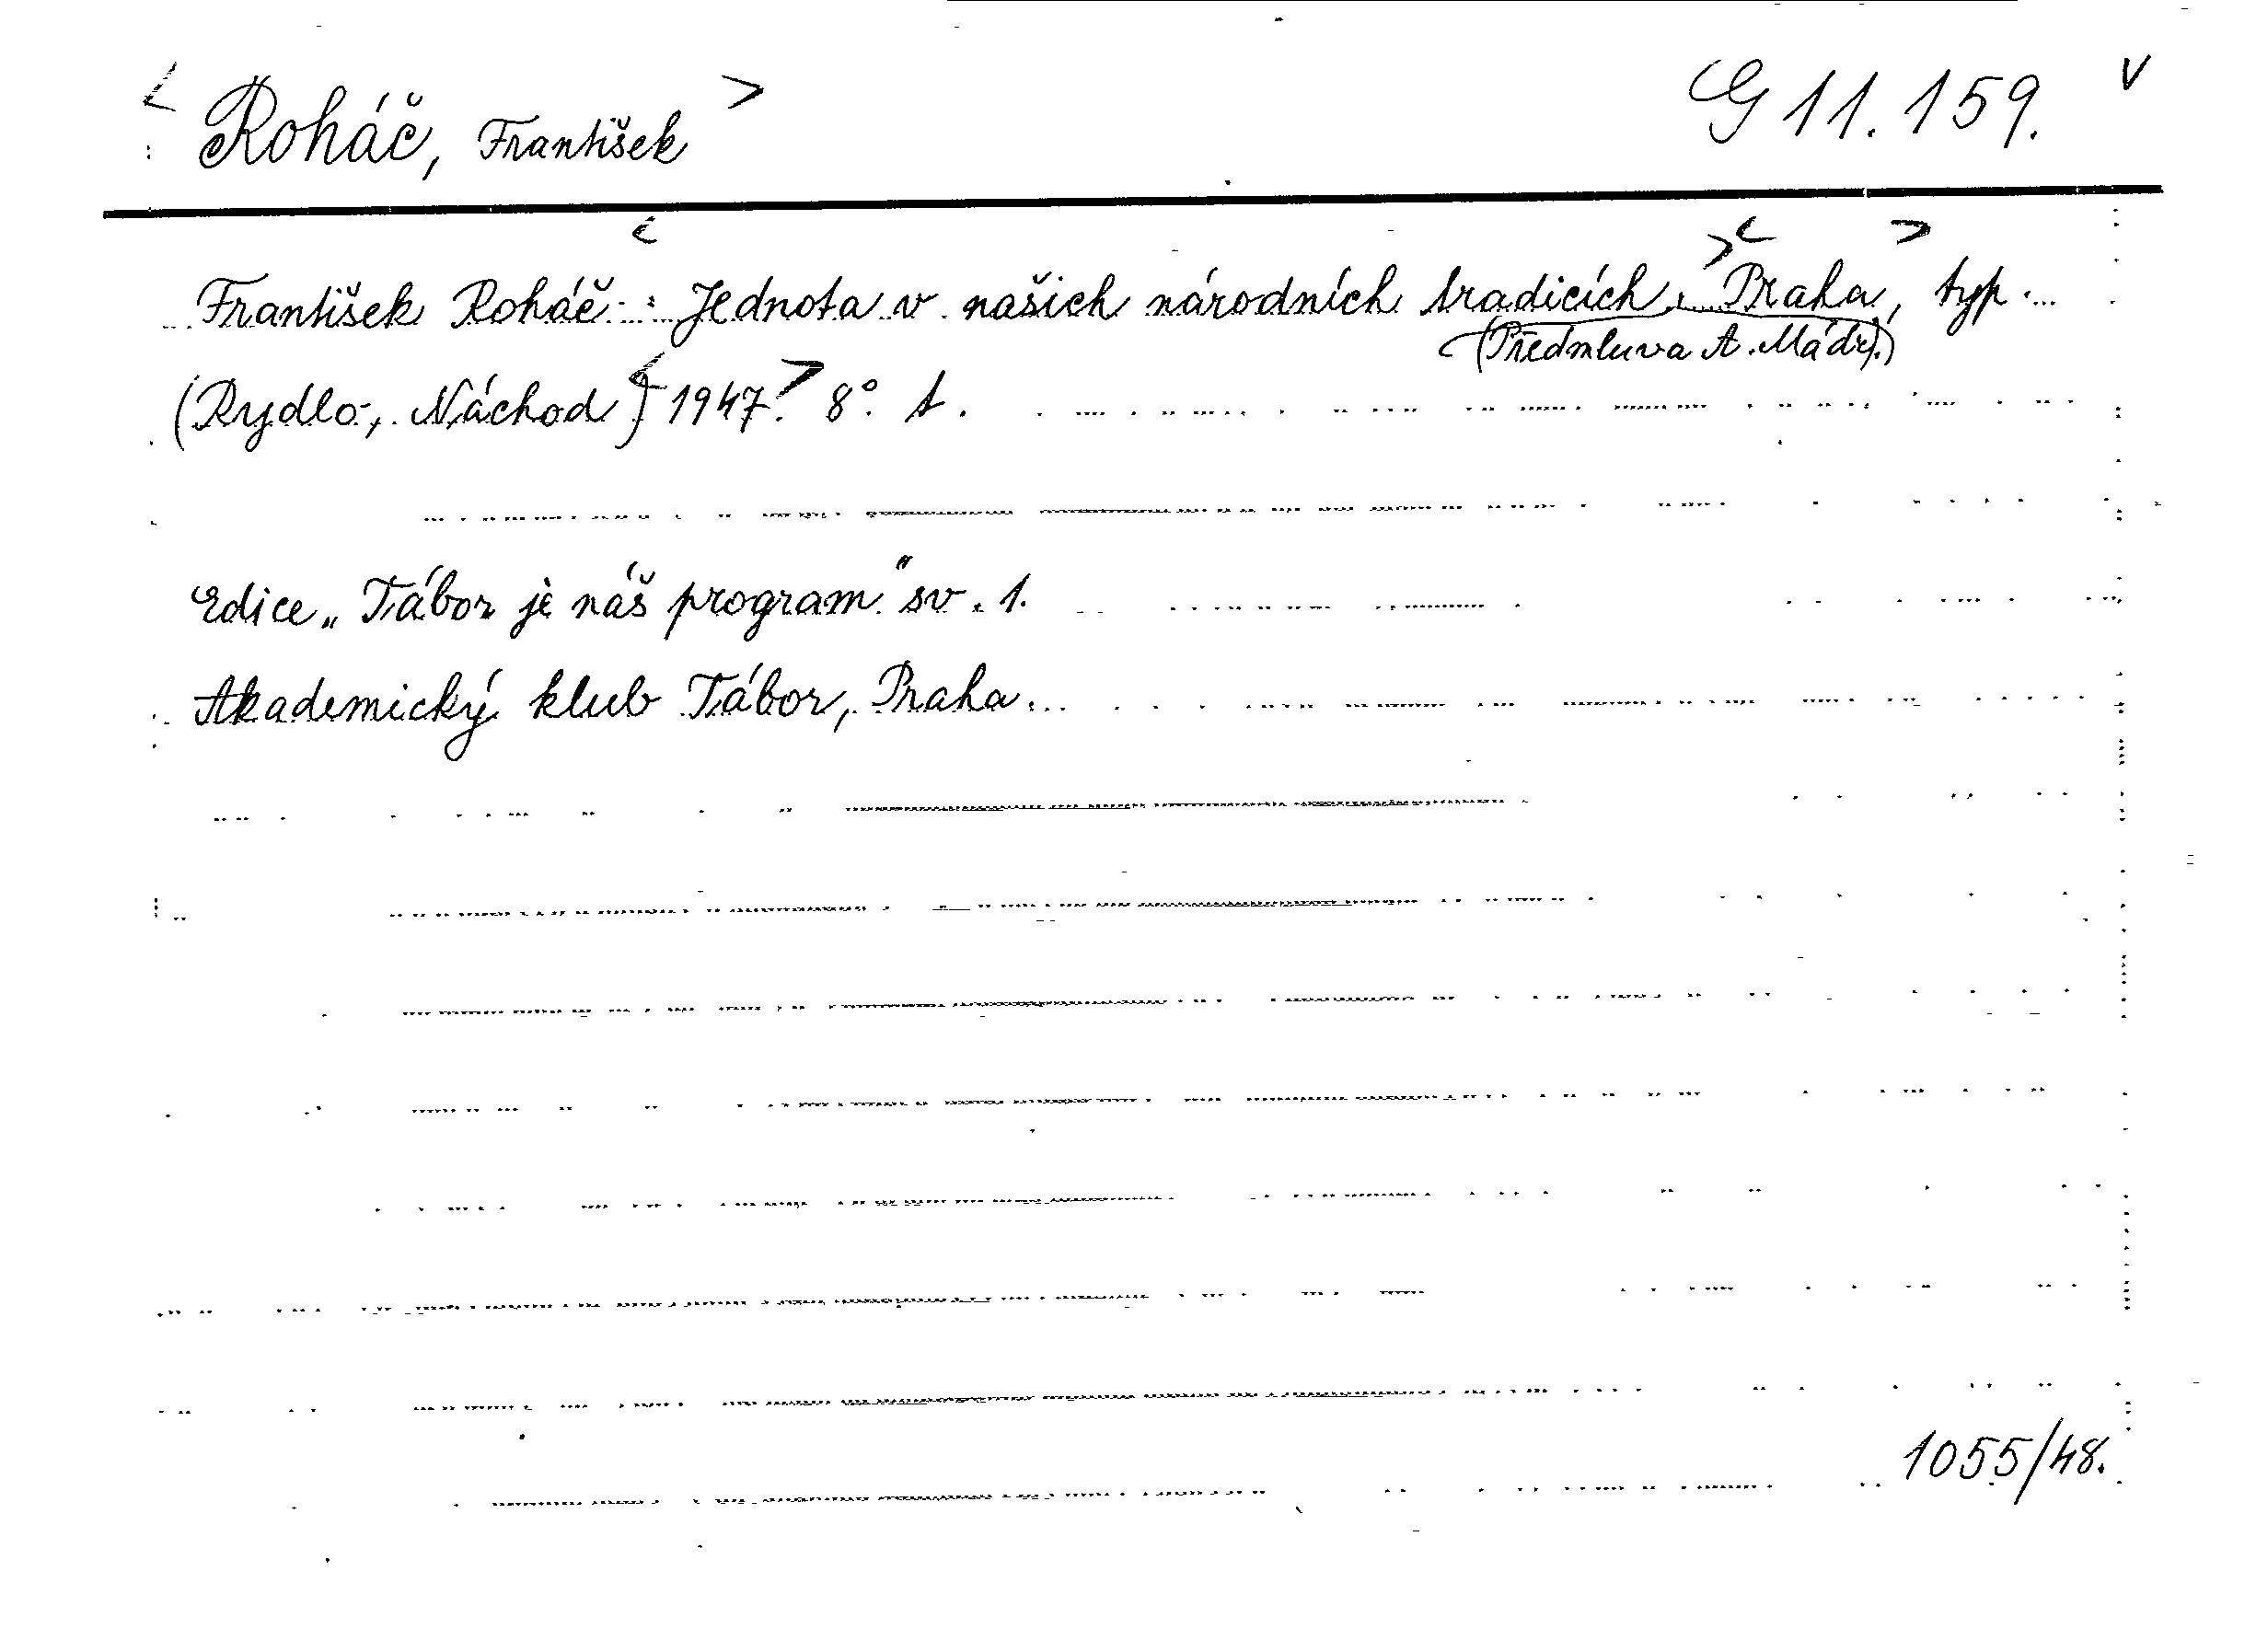 < Roháč, František > G 11.159. v
František Roháč : < Jednota v našich národních tradicích. > < Praha, > typ.
(Předmluva A. Mádr.)
(Rydlo, Náchod) < 1947. > 8°. 1.
Edice „Tábor je náš program" sv. 1.
Akademický klub Tábor, Praha.
1055/48.